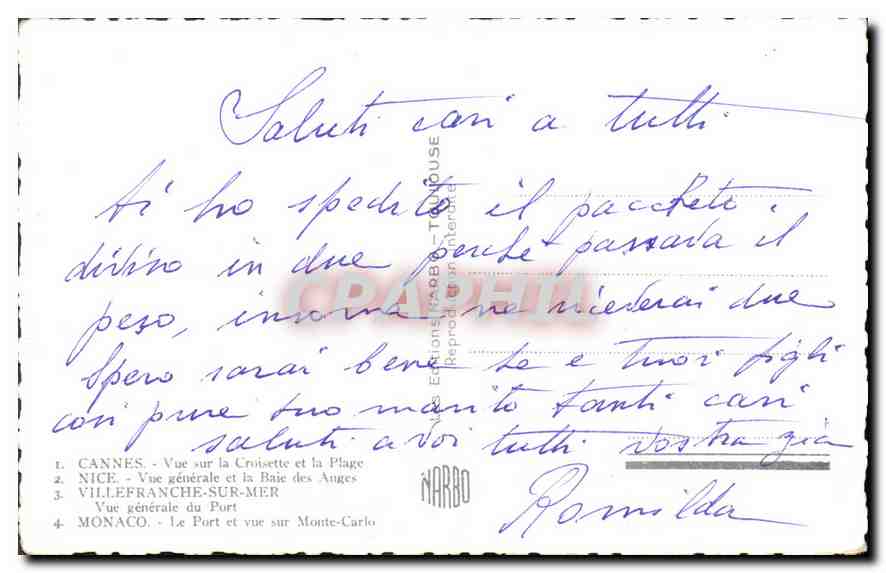 Saluti cari a tutti
ti ho spedito il pacchetto
diviso in due perché passava il
peso, insoma ne riceverai due
Spero sarai bene te e tuoi figli
cosi pure tuo marito tanti cari
saluti a voi tutti vostra zia
Romilda
Les Editions NARBO - TOULOUSE
Reproduction interdite
CPAPHIL
1. CANNES. - Vue sur la Croisette et la Plage
2. NICE. - Vue générale et la Baie des Anges
3. VILLEFRANCHE-SUR-MER
Vue générale du Port
4. MONACO. - Le Port et vue sur Monte-Carlo
NARBO